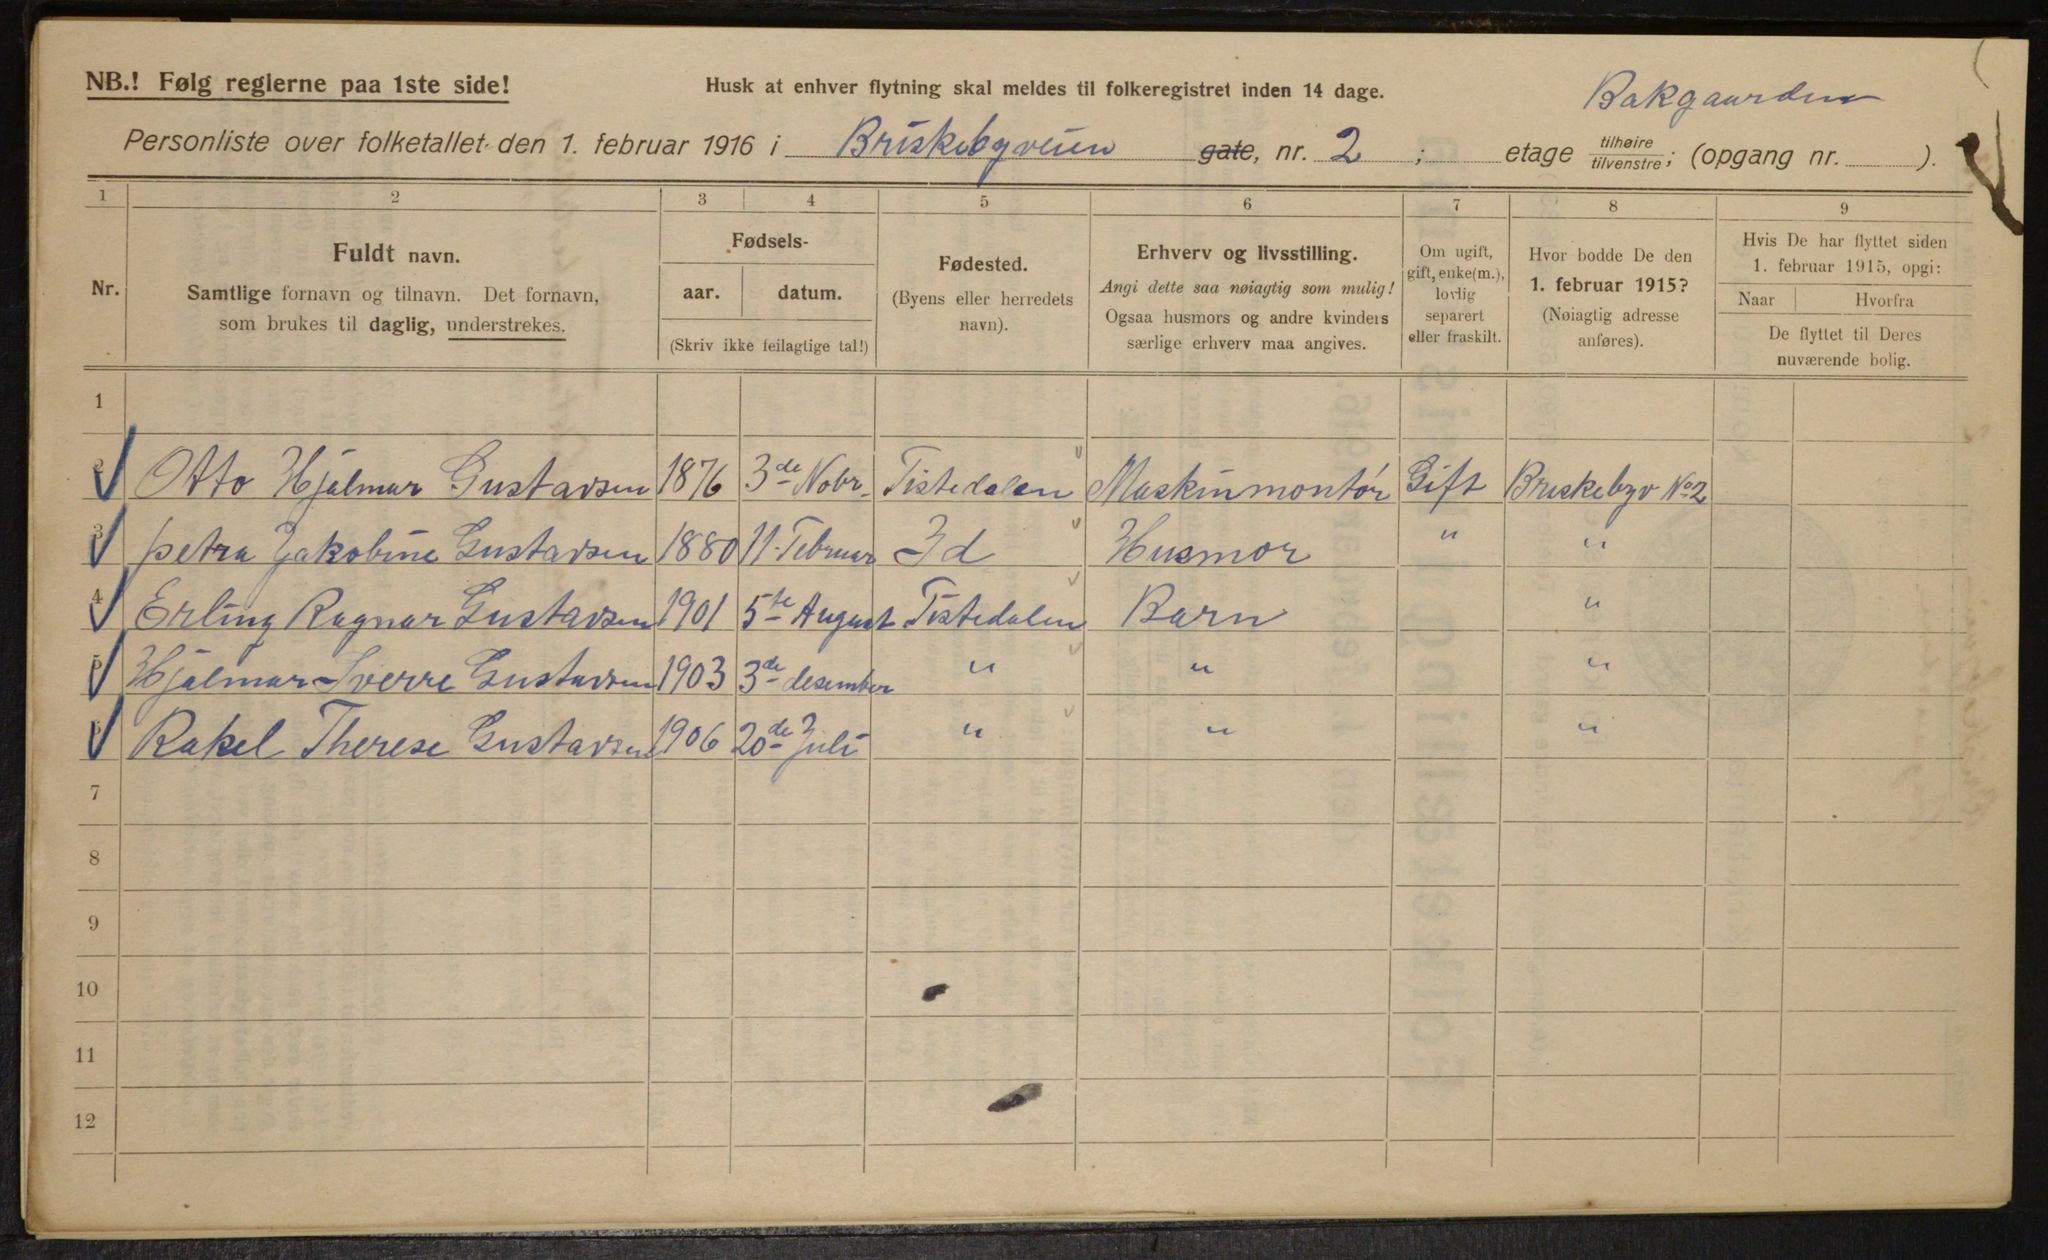 NB.! Følg reglerne paa 1ste side!
Husk at enhver flytning skal meldes til folkeregistret inden 14 dage.
Bakgaarden
Personliste over folketallet den 1. februar 1916 i Briskebyveien gate, nr. 2 ; etage tilhøire/tilvenstre; (opgang nr. ).
1 2 3 4 5 6 7 8 9
Nr.
Fuldt navn.
Samtlige fornavn og tilnavn. Det fornavn,
som brukes til daglig, understrekes.
Fødsels-
aar. datum.
(Skriv ikke feilagtige tal!)
Fødested.
(Byens eller herredets
navn).
Erhverv og livsstilling.
Angi dette saa nøiagtig som mulig!
Ogsaa husmors og andre kvinders
særlige erhverv maa angives.
Om ugift,
gift, enke(m.),
lovlig
separert
eller fraskilt.
Hvor bodde De den
1. februar 1915?
(Nøiagtig adresse
anføres).
Hvis De har flyttet siden
1. februar 1915, opgi:
Naar Hvorfra
De flyttet til Deres
nuværende bolig.
1
2 Otto Hjalmar Gustavsen 1876 3de Nobr. Tistedalen Maskinmontør Gift Briskebyv No 2
3 Petra Jakobine Gustavsen 1880 11. Februar Id Husmor " "
4 Erling Ragnar Gustavsen 1901 5te August Tistedalen Barn "
5 Hjalmar Sverre Gustavsen 1903 3de desember " " "
6 Rakel Therese Gustavsen 1906 20de Juli " " "
7
8
9
10
11
12